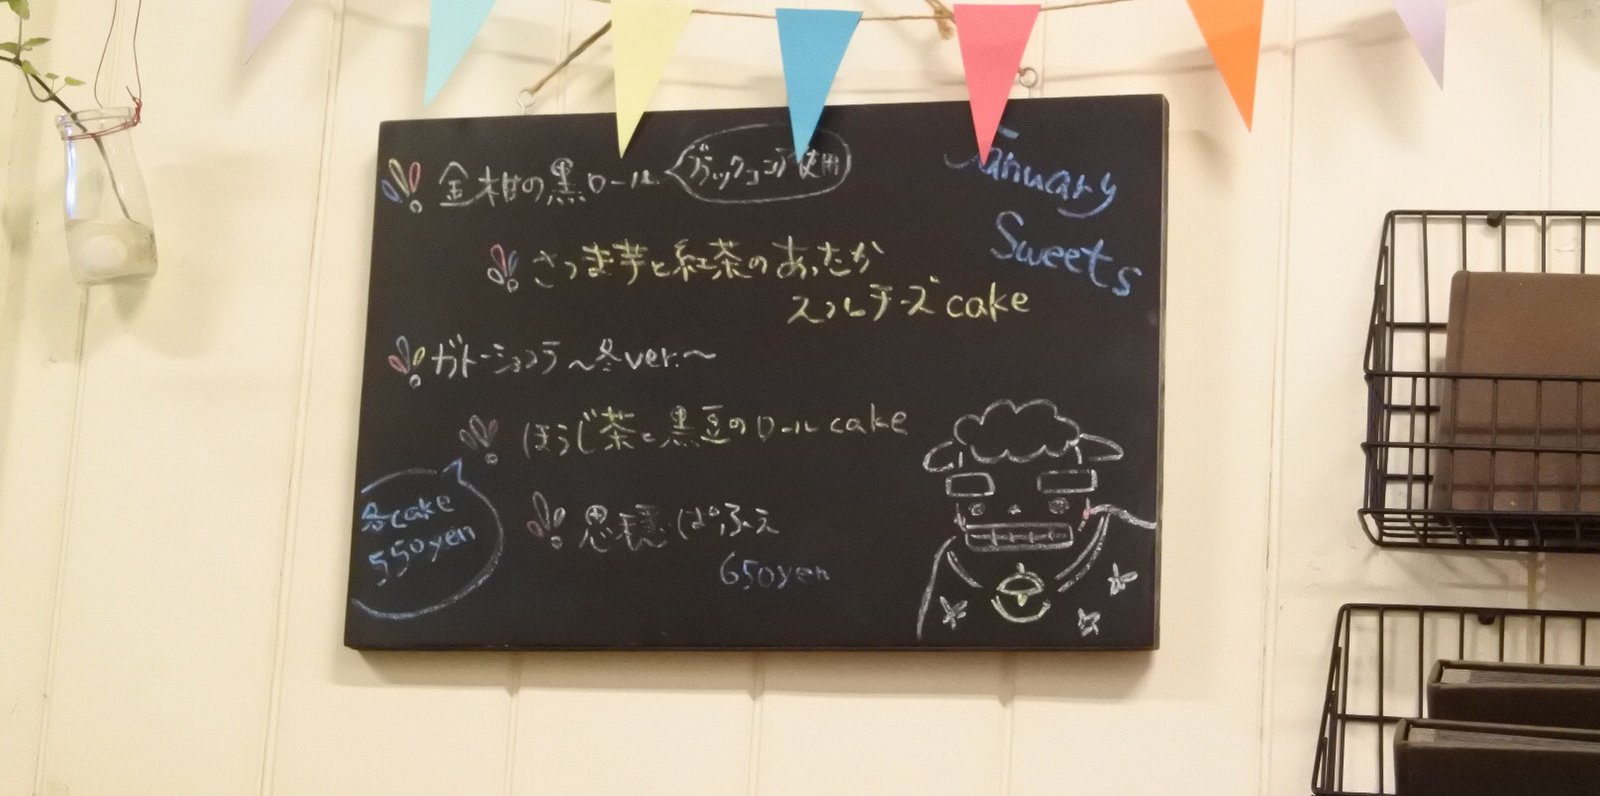 金柑の黒ロール
ブラックココア使用
January
Sweets
さつま芋と紅茶のあったか
スフレチーズcake
ガトーショコラ～冬ver.～
ほうじ茶と黒豆のロールcake
各cake
550yen
ぱふぇ
650yen